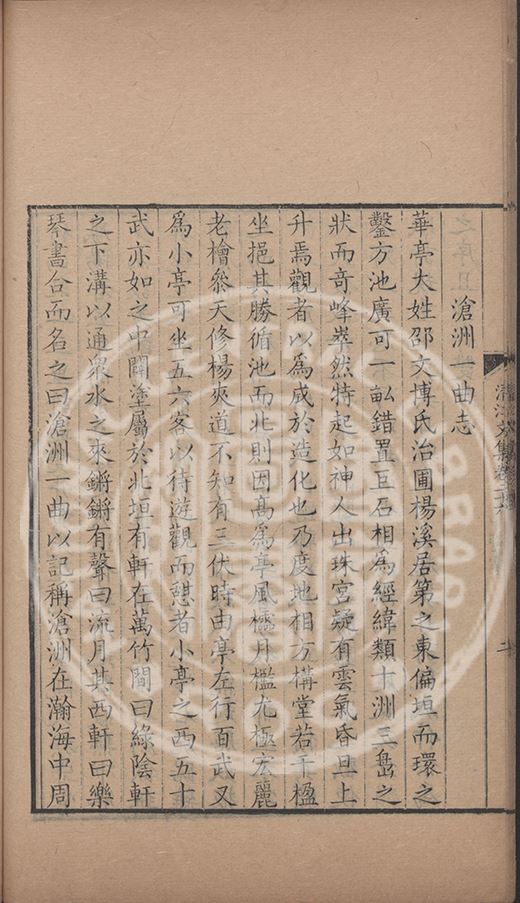 滄洲一曲志
華亭大姓邵文博氏治圃楊溪居第之東偏垣而環之
鑿方池廣可一畝錯置巨石相爲經緯類十洲三島之
狀而奇峰崒然特起如神人出珠宮疑有雲氣昏旦上
升焉觀者以爲成於造化也乃度地相方構堂若干楹
坐挹其勝循池而北則因高爲亭風櫺月檻尤極宏麗
老檜參天修楊夾道不知有三伏時由亭左行百武又
爲小亭可坐五六客以待遊觀而憇者小亭之西五十
武亦如之中闢塗屬於北垣有軒在萬竹間曰綠陰軒
之下溝以通衆水之來鏘鏘有聲曰流月其西軒曰樂
琴書合而名之曰滄洲一曲以記稱滄洲在瀚海中周